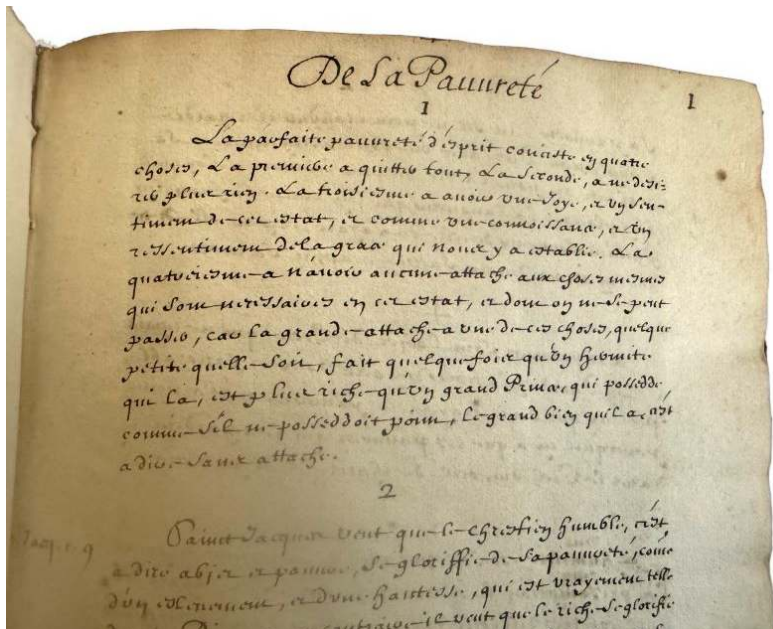 De La Pauureté
1
1
La parfaite pauureté d'esprit consiste en quatre
choses, La premiere a quitter tout, La seconde, a ne desi-
rer plus rien. La troisiesme a auoir vne Joye, et vn sen-
timent de cet estat, et comme vne connoissance, et vn
ressentiment de la grace qui nous y a establie. La
quatriesme a n'auoir aucune attache aux choses mesmes
qui sont necessaires en cet estat, et dont on ne se peut
passer, car la grande attache a vne de ces choses, quelque
petite quelle soit, fait quelquefois qu'vn hermite
qui l'a, est plus riche qu'vn grand Prince, qui possedde
comme s'il ne posseddoit point, le grand bien quil a, c'est
a dire sans attache.
2
Jacq. 1. 9
Sainct Jacques veut que le chrestien humble, c'est
a dire abjet et pauure, se gloriffie de sa pauureté, comē
d'vn esleuement, et d'vne hautesse, qui est vrayement telle
contraire il veut que le riche se glorifie